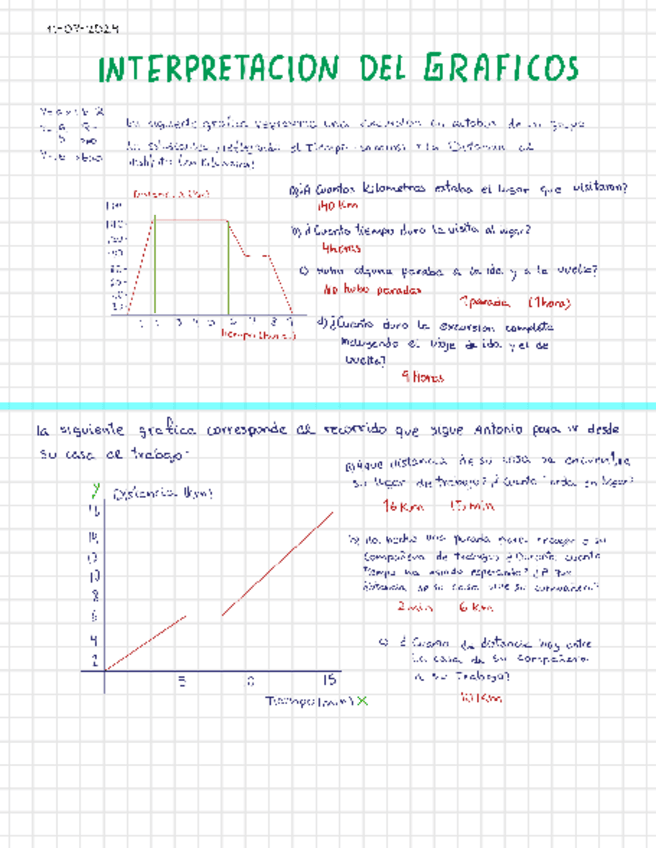 11-07-2024
INTERPRETACION DEL GRAFICOS
La siguiente grafica representa una excursion en autobus de un grupo
de estudiantes reflejando el Tiempo y la Distancia al
Distancia (Km)
140
Tiempo (horas)
a) ¿A Cuantos kilometros estaba el lugar que visitaron?
140 Km
b) ¿Cuanto tiempo duro la visita al lugar?
4 horas
c) Hubo alguna parada a la ida y a la vuelta?
No hubo paradas
1 parada (1 hora)
d) ¿Cuanto duro la excursion completa
incluyendo el viaje de ida y el de
vuelta?
9 Horas
La siguiente grafica corresponde al recorrido que sigue Antonio para ir desde
su casa al trabajo.
y Distancia (km)
16
14
12
10
8
6
4
2
5 15
Tiempo (min) X
a) ¿A que distancia de su casa se encuentra
su lugar de trabajo? ¿Cuanto tarda en llegar?
16 Km 15 min
b) Ha hecho una parada para recoger a su
compañera de trabajo ¿Durante cuanto
tiempo ha estado esperando? ¿A que
distancia de su casa vive su compañera?
2 min 6 Km
c) ¿Cuanta distancia hay entre
la casa de su compañera
a su Trabajo?
10 Km